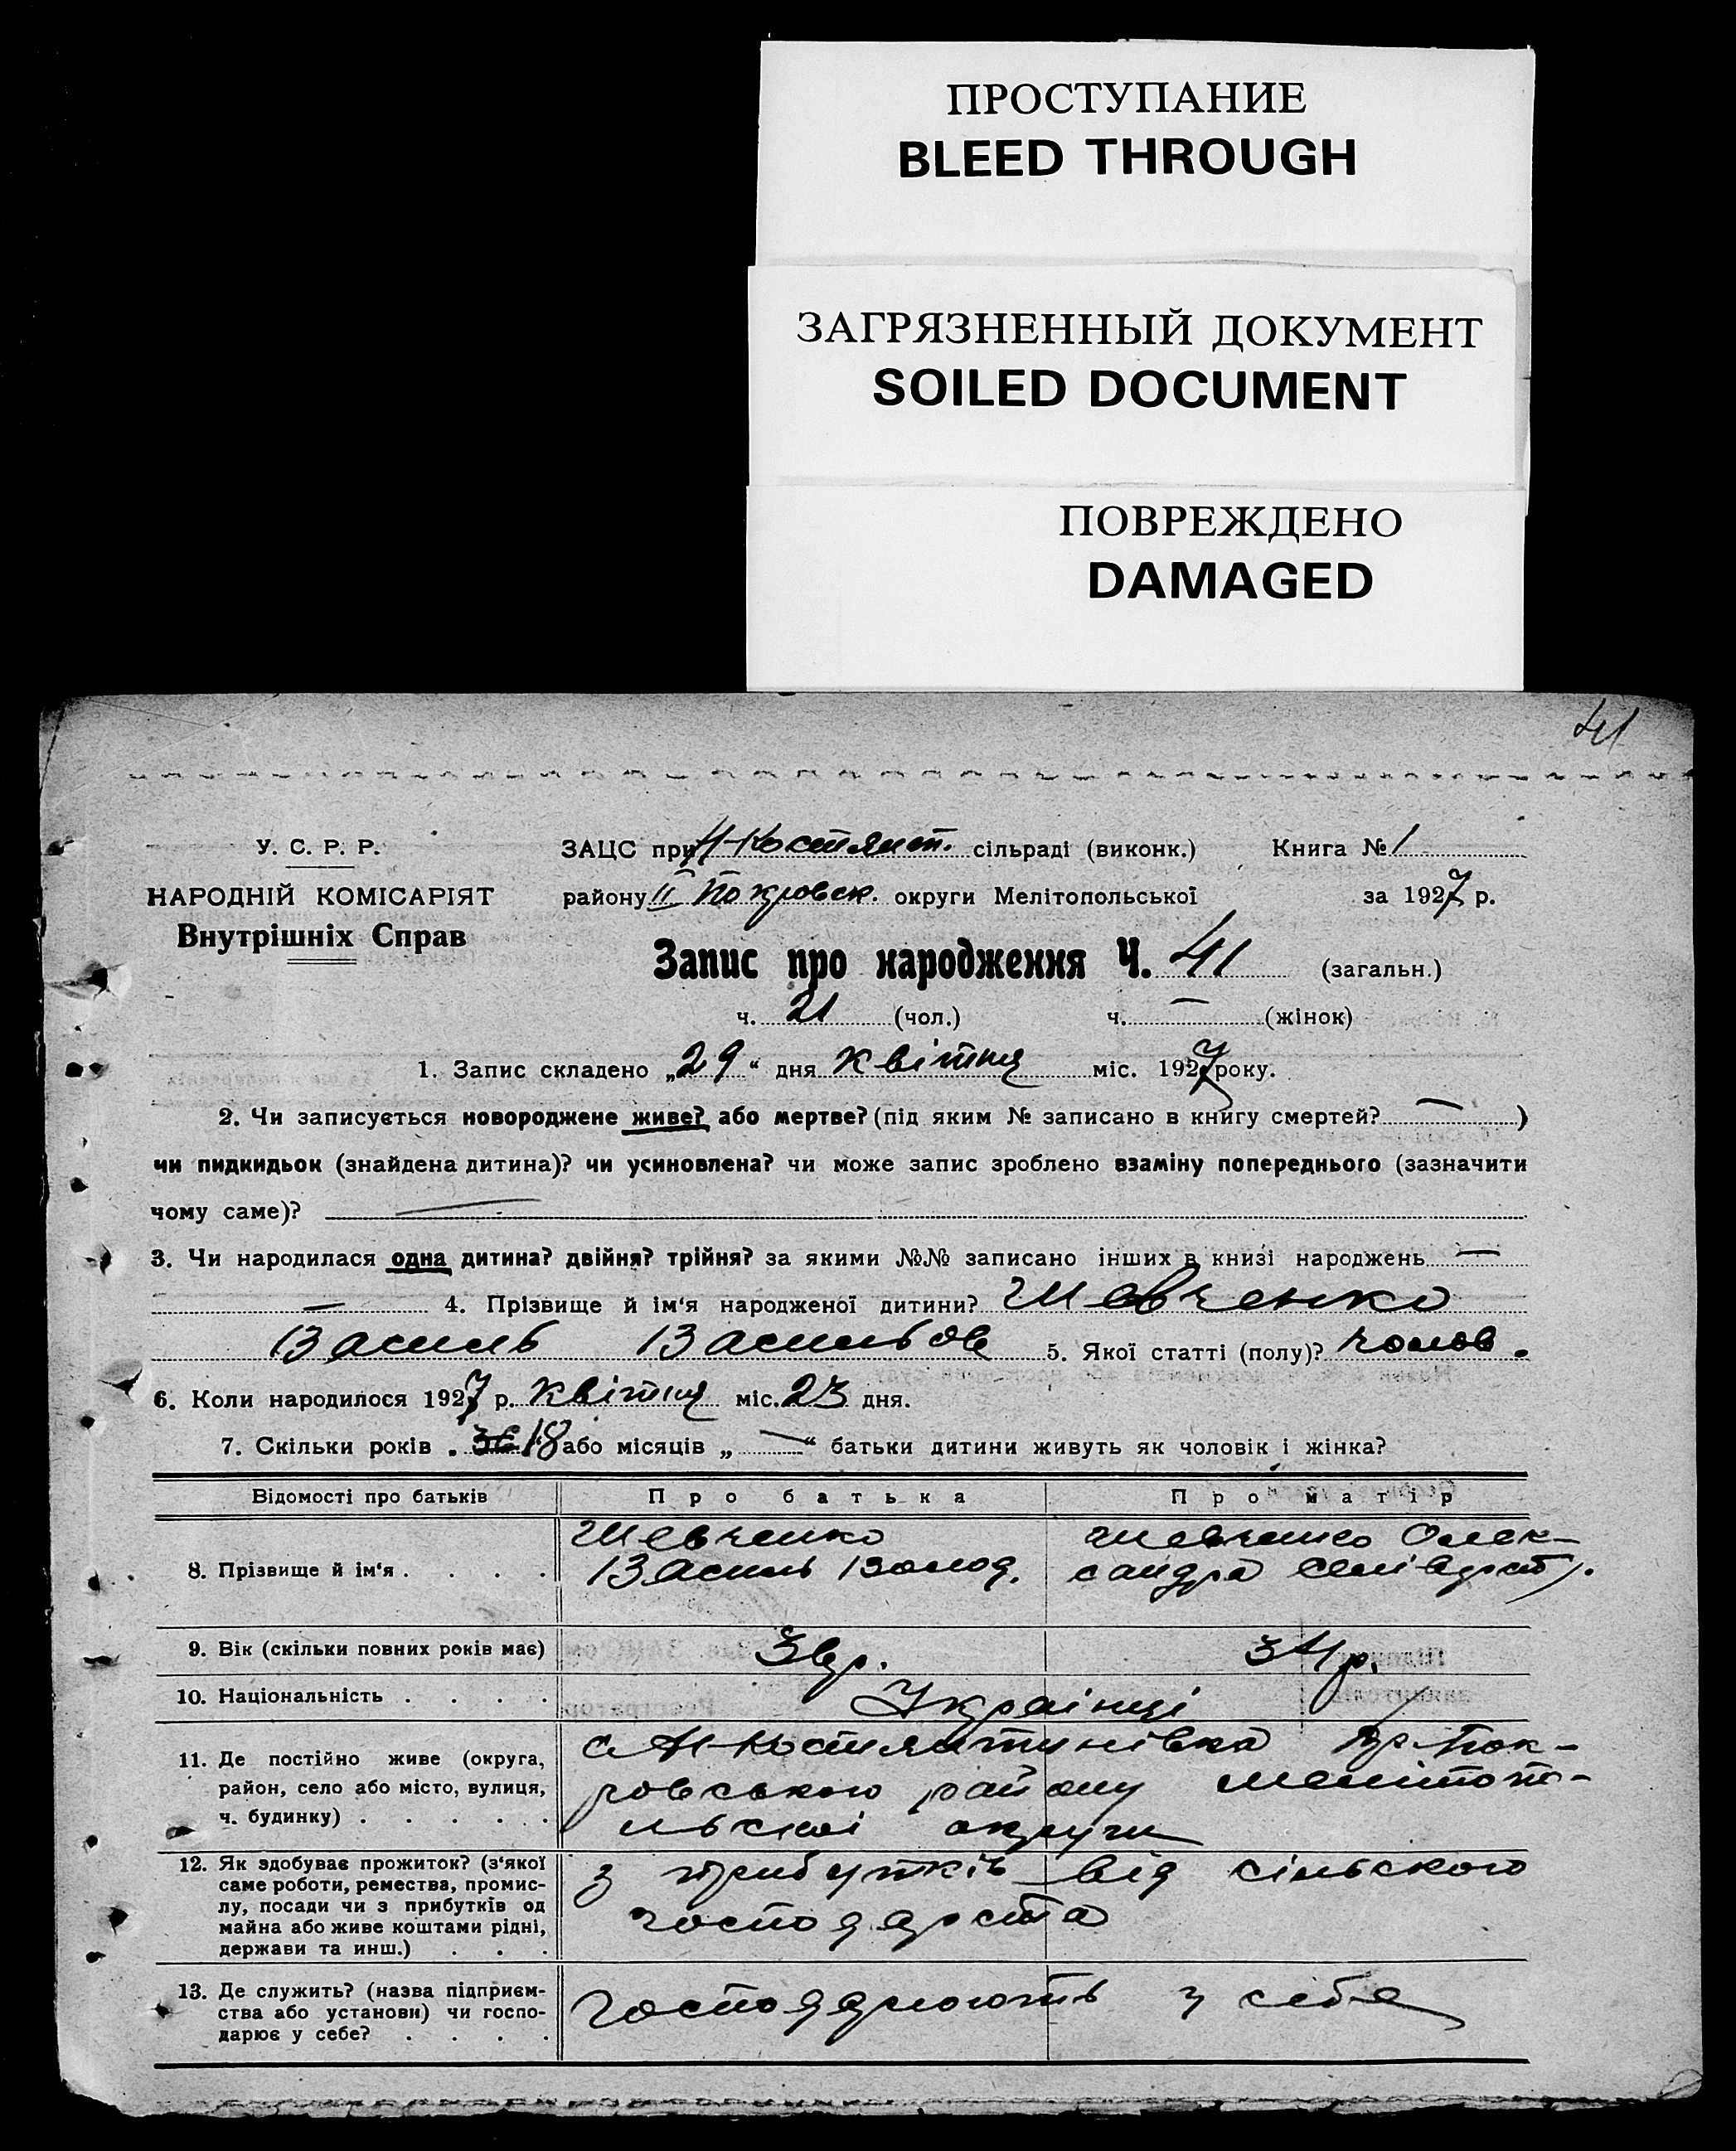 ПРОСТУПАНИЕ
BLEED THROUGH
ЗАГРЯЗНЕННЫЙ ДОКУМЕНТ
SOILED DOCUMENT
ПОВРЕЖДЕНО
DAMAGED
41
У. С. Р. Р.
НАРОДНІЙ КОМІСАРІЯТ
Внутрішніх Справ
ЗАЦС при Н-Костянт. сільраді (виконк.) Книга № 1
району ІІ Покровск. округи Мелітопольської за 1927 р.
Запис про народження Ч. 41 (загальн.)
ч. 21 (чол.) ч. — (жінок)
1. Запис складено „29“ дня квітня міс. 1927 року.
2. Чи записується новороджене живе? або мертве? (під яким № записано в книгу смертей? — )
чи пидкидьок (знайдена дитина)? чи усиновлена? чи може запис зроблено взаміну попереднього (зазначити
чому саме)? —
3. Чи народилася одна дитина? двійня? трійня? за якими №№ записано інших в книзі народжень —
— 4. Прізвище й ім‘я народженої дитини? Шевченко
Василь Васильов 5. Якої статті (полу)? чолов.
6. Коли народилося 1927 р. квітня міс. 23 дня.
7. Скільки років „ 18 або місяців „ — “ батьки дитини живуть як чоловік і жінка?
Відомості про батьків Про батька Про матір
8. Прізвище й ім‘я . . . . Шевченко Василь Волод. Шевченко Олександра Селівдрст.
9. Вік (скільки повних років має) р. 34 р.
10. Національність . . . . Українці
11. Де постійно живе (округа,
район, село або місто, вулиця,
ч. будинку) . . . . .
с. Н-Костянтинівка Пок-
ровського району Мелітопо-
льскої округи
12. Як здобуває прожиток? (з‘якої
саме роботи, ремества, промис-
лу, посади чи з прибутків од
майна або живе коштами рідні,
держави та инш.) . . .
з прибутків від сільского
господарста
13. Де служить? (назва підприєм-
ства або установи) чи госпо-
дарює у себе? . . . .
господарюють у себе